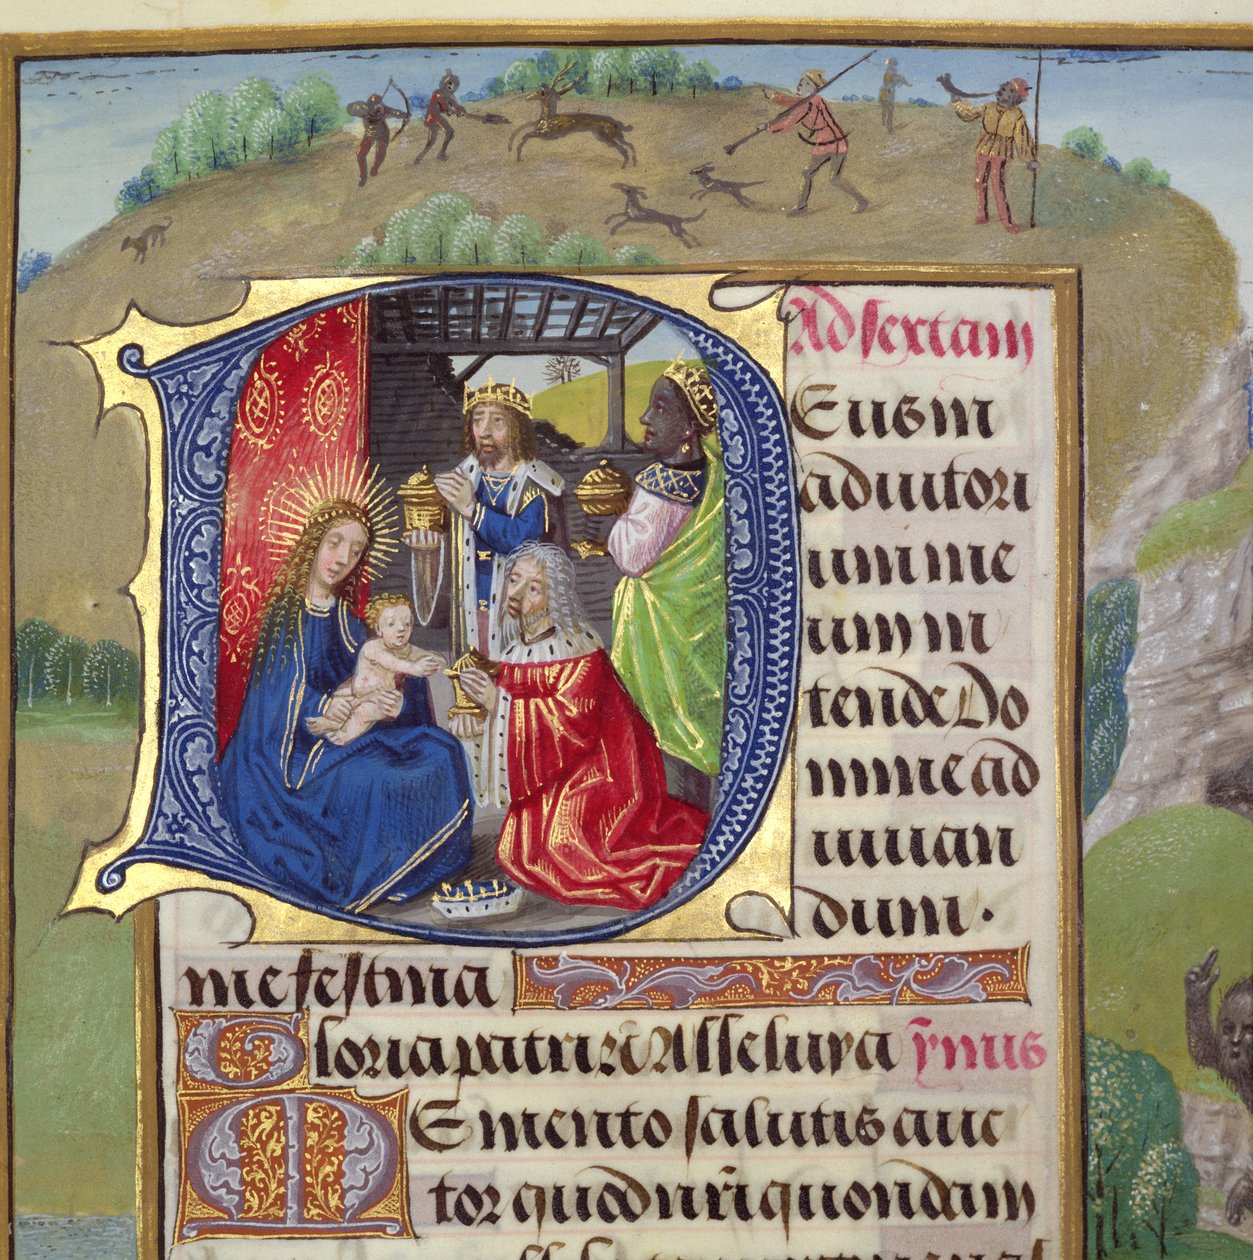 Ad sextam
DEus in
adiutori
um me
um in
tende Do
mine ad
iuuan
dum.
me festina
Gloria patri Alleluya ymnus
MEmento salutis auc
tor quod nr̄i quondam